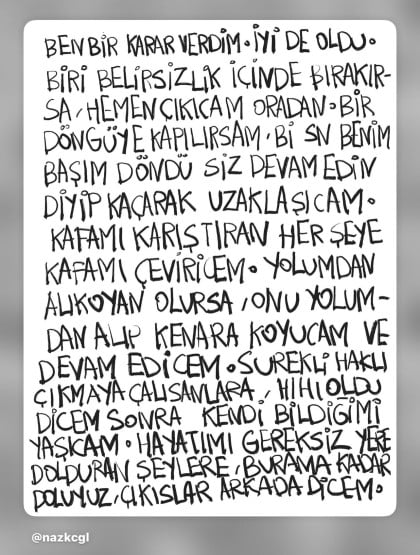 BEN BİR KARAR VERDİM. İYİ DE OLDU.
BİRİ BELİRSİZLİK İÇİNDE BIRAKIR-
SA, HEMEN ÇIKICAM ORADAN. BİR
DÖNGÜYE KAPILIRSAM, Bİ SN BENİM
BAŞIM DÖNDÜ SİZ DEVAM EDİN
DİYİP KAÇARAK UZAKLAŞICAM.
KAFAMI KARIŞTIRAN HER ŞEYE
KAFAMI ÇEVİRİCEM. YOLUMDAN
ALIKOYAN OLURSA, ONU YOLUM-
DAN ALIP KENARA KOYUCAM VE
DEVAM EDİCEM. SÜREKLİ HAKLI
ÇIKMAYA ÇALIŞANLARA, HIHI OLDU
DİCEM SONRA KENDİ BİLDİĞİMİ
YAŞICAM. HAYATIMI GEREKSİZ YERE
DOLDURAN ŞEYLERE, BURAMA KADAR
DOLUYUZ, ÇIKIŞLAR ARKADA DİCEM.
@nazkcgl